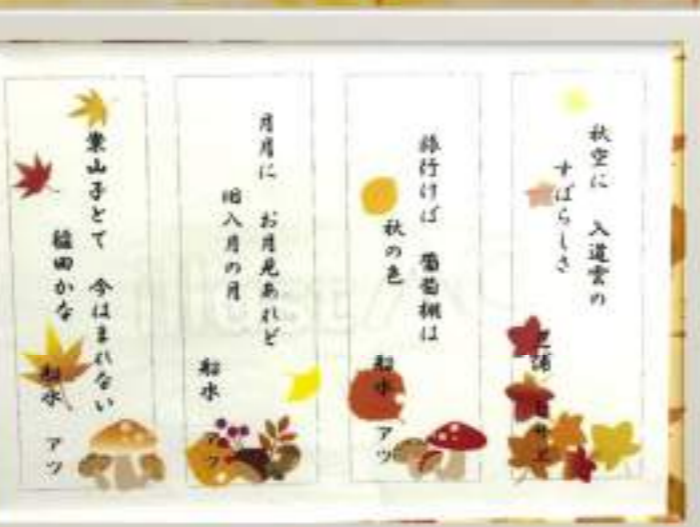 秋空に　入道雲の
すばらしさ
旅行けば　葡萄棚は
秋の色
船水　アツ
月月に　お月見あれど
旧八月の月
船水　アツ
案山子とて　今はまれない
稲田かな
船水　アツ